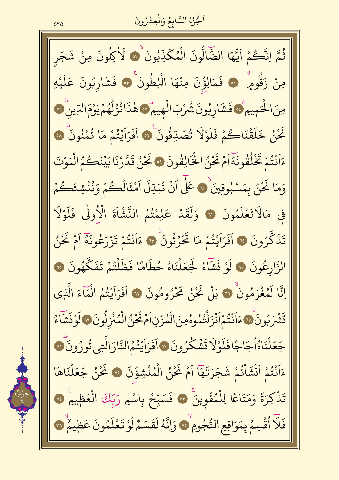 اَلْجُزْءُ السَّابِعُ وَالْعِشْرُونَ
٥٣٥
ثُمَّ اِنَّكُمْ اَيُّهَا الضَّٓالُّونَ الْمُكَذِّبُونَۙ ﴿٥١﴾ لَاٰكِلُونَ مِنْ شَجَرٍ
مِنْ زَقُّومٍۙ ﴿٥٢﴾ فَمَالِؤُ۫نَ مِنْهَا الْبُطُونَۚ ﴿٥٣﴾ فَشَارِبُونَ عَلَيْهِ
مِنَ الْحَم۪يمِۚ ﴿٥٤﴾ فَشَارِبُونَ شُرْبَ الْه۪يمِۜ ﴿٥٥﴾ هٰذَا نُزُلُهُمْ يَوْمَ الدّ۪ينِۜ ﴿٥٦﴾
نَحْنُ خَلَقْنَاكُمْ فَلَوْلَا تُصَدِّقُونَ ﴿٥٧﴾ اَفَرَاَيْتُمْ مَا تُمْنُونَۜ ﴿٥٨﴾
ءَاَنْتُمْ تَخْلُقُونَهُٓ اَمْ نَحْنُ الْخَالِقُونَ ﴿٥٩﴾ نَحْنُ قَدَّرْنَا بَيْنَكُمُ الْمَوْتَ
وَمَا نَحْنُ بِمَسْبُوق۪ينَۙ ﴿٦٠﴾ عَلٰٓى اَنْ نُبَدِّلَ اَمْثَالَكُمْ وَنُنْشِئَكُمْ
ف۪ي مَا لَا تَعْلَمُونَ ﴿٦١﴾ وَلَقَدْ عَلِمْتُمُ النَّشْاَةَ الْاُو۫لٰى فَلَوْلَا
تَذَكَّرُونَ ﴿٦٢﴾ اَفَرَاَيْتُمْ مَا تَحْرُثُونَۜ ﴿٦٣﴾ ءَاَنْتُمْ تَزْرَعُونَهُٓ اَمْ نَحْنُ
الزَّارِعُونَ ﴿٦٤﴾ لَوْ نَشَٓاءُ لَجَعَلْنَاهُ حُطَامًا فَظَلْتُمْ تَفَكَّهُونَ ﴿٦٥﴾
اِنَّا لَمُغْرَمُونَۙ ﴿٦٦﴾ بَلْ نَحْنُ مَحْرُومُونَ ﴿٦٧﴾ اَفَرَاَيْتُمُ الْمَٓاءَ الَّذ۪ي
تَشْرَبُونَۜ ﴿٦٨﴾ ءَاَنْتُمْ اَنْزَلْتُمُوهُ مِنَ الْمُزْنِ اَمْ نَحْنُ الْمُنْزِلُونَ ﴿٦٩﴾ لَوْ نَشَٓاءُ
جَعَلْنَاهُ اُجَاجًا فَلَوْلَا تَشْكُرُونَ ﴿٧٠﴾ اَفَرَاَيْتُمُ النَّارَ الَّت۪ي تُورُونَۜ ﴿٧١﴾
ءَاَنْتُمْ اَنْشَأْتُمْ شَجَرَتَهَٓا اَمْ نَحْنُ الْمُنْشِؤُ۫نَ ﴿٧٢﴾ نَحْنُ جَعَلْنَاهَا
تَذْكِرَةً وَمَتَاعًا لِلْمُقْو۪ينَۚ ﴿٧٣﴾ فَسَبِّحْ بِاسْمِ رَبِّكَ الْعَظ۪يمِ ﴿٧٤﴾
فَلَٓا اُقْسِمُ بِمَوَاقِعِ النُّجُومِۙ ﴿٧٥﴾ وَاِنَّهُ لَقَسَمٌ لَوْ تَعْلَمُونَ عَظ۪يمٌۙ ﴿٧٦﴾